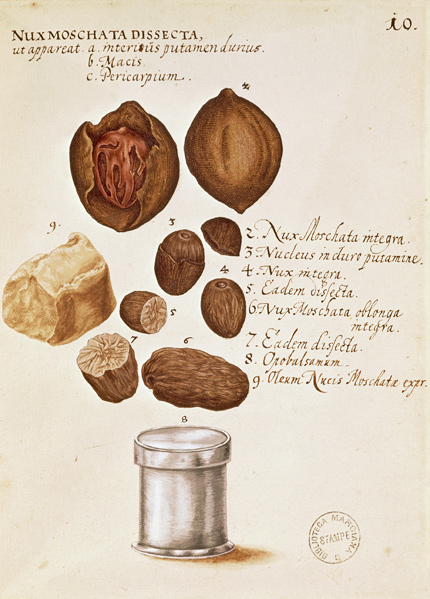 10.
NUX MOSCHATA DISSECTA,
ut appareat. a. interius putamen durius.
b. Macis.
c. Pericarpium.
2
9.
3
2. Nux Moschata integra.
3 Nucleus in duro putamine.
4
4. Nux integra.
5
5. Eadem dissecta.
6 Nux Moschata oblonga
integra.
7
6
7. Eadem dissecta.
8. Opobalsamum.
9. Oleum Nucis Moschatæ expr.
8
BIBLIOTECA MARCIANA
STAMPE